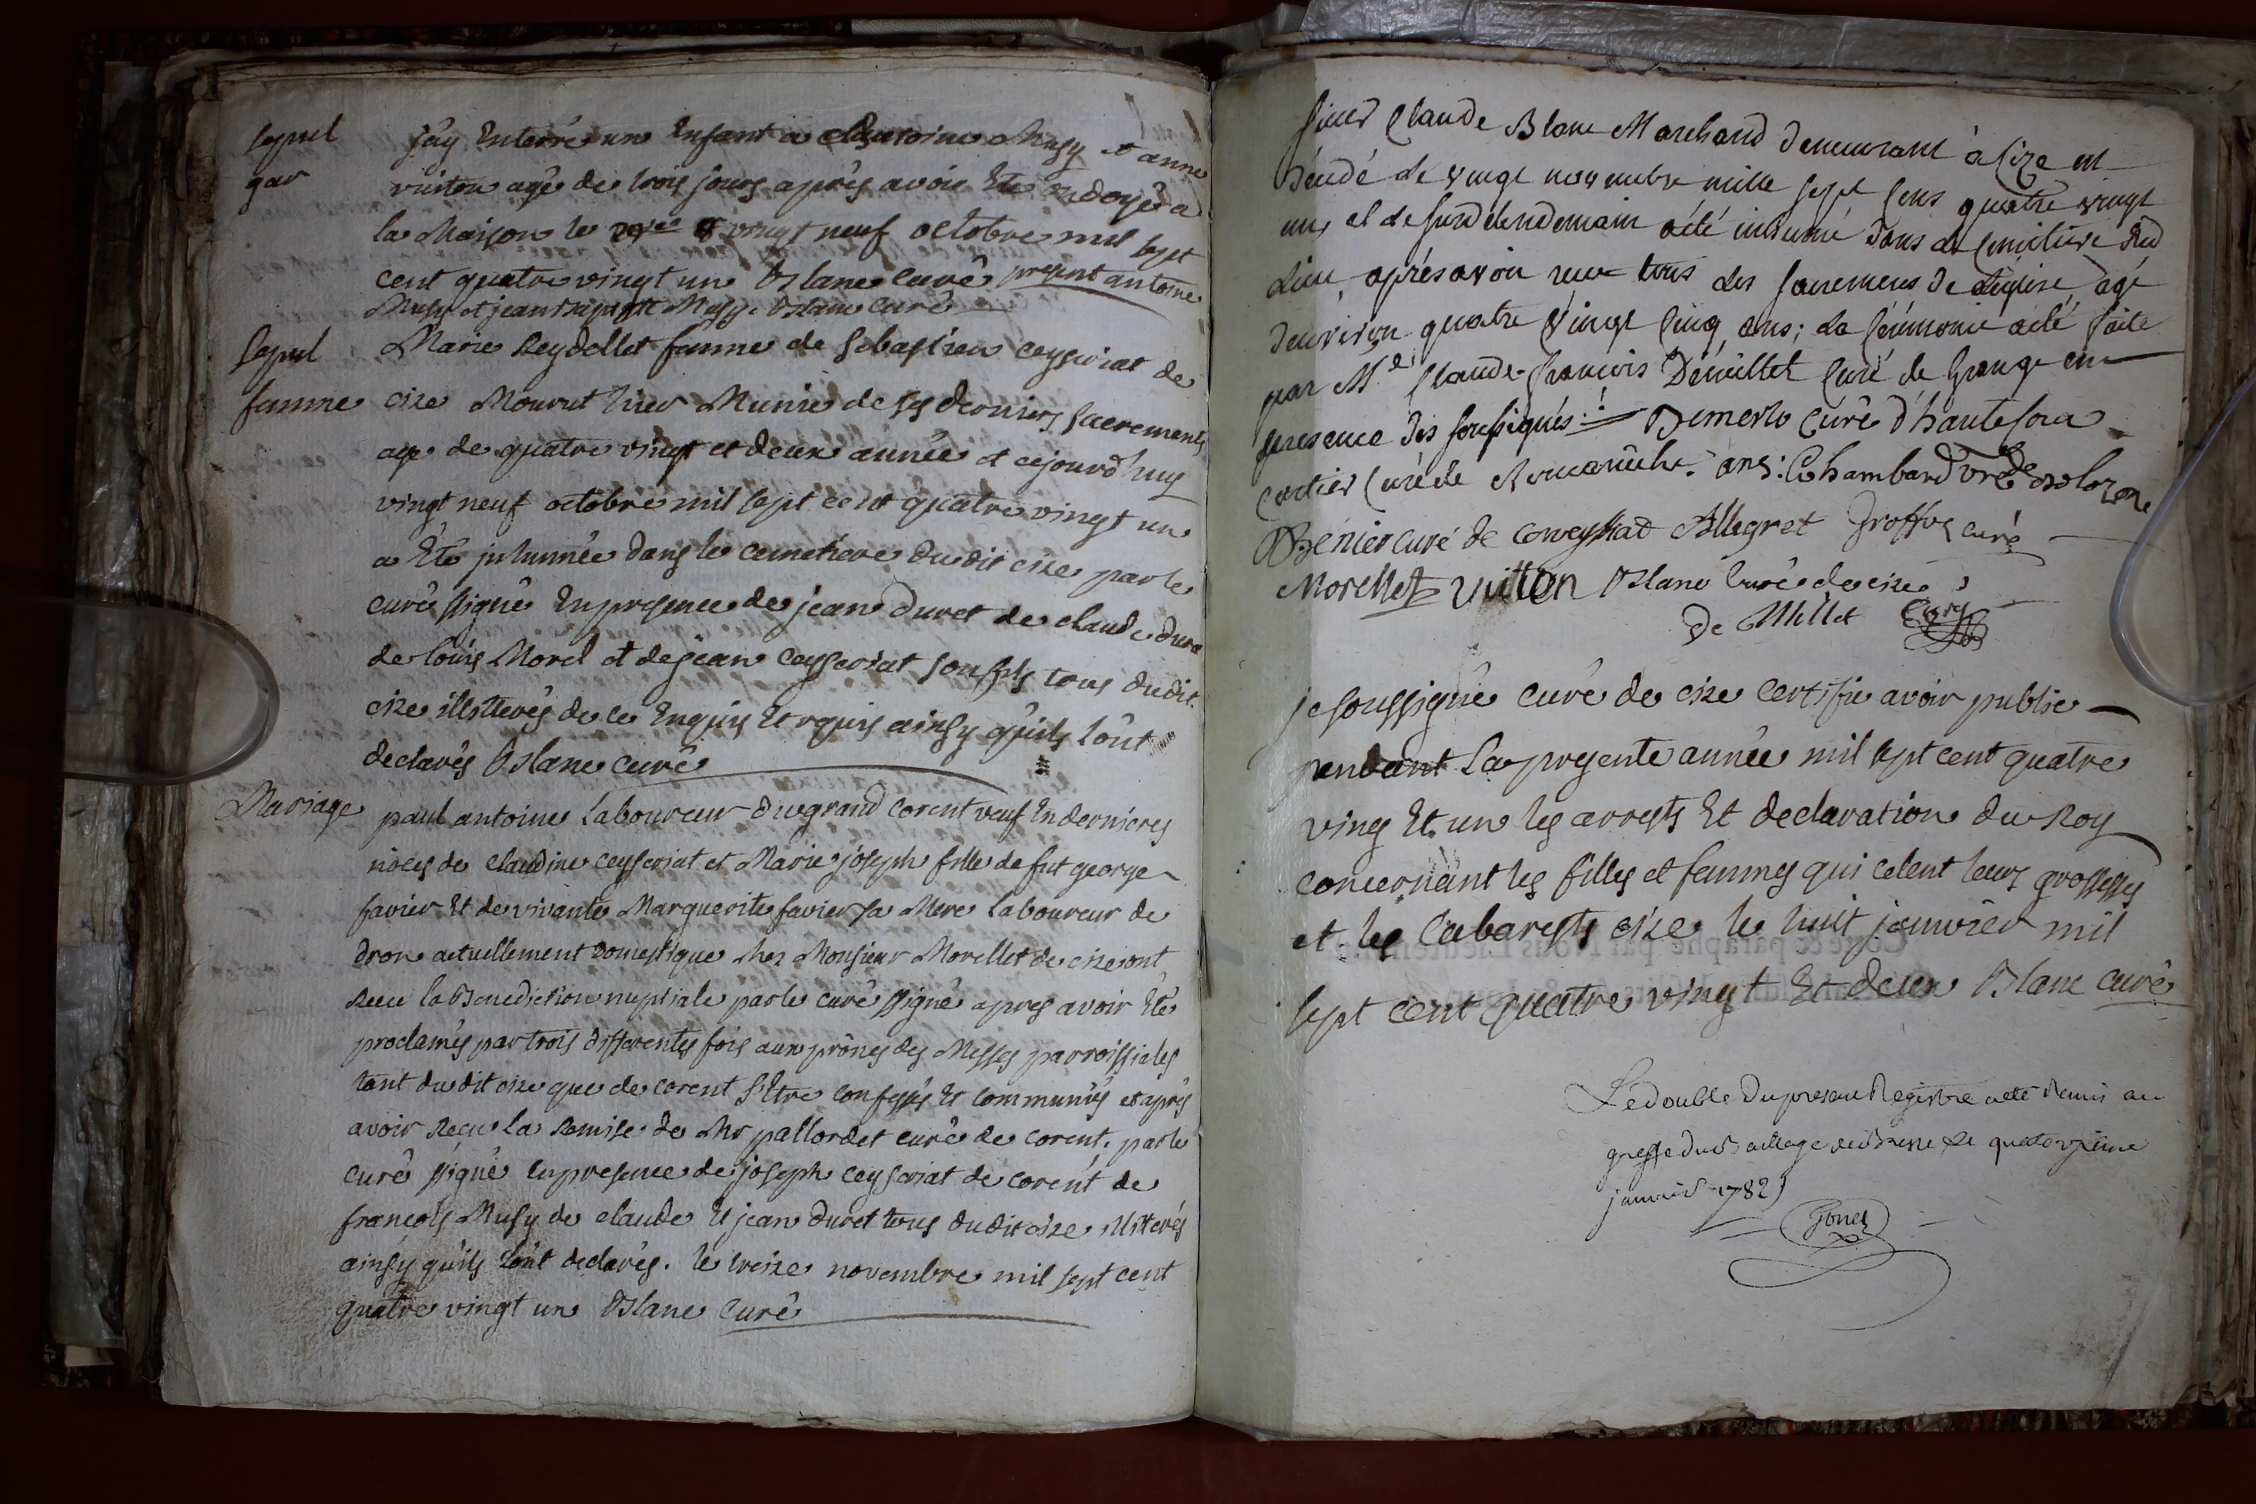 sepul
gar
j'ay Enterré un Enfant a antoine Musy et anne
vuiton agé de trois jours après avoir Eté ondoyé a
la Maison le vingt neuf octobre mil sept
cent quatre vingt un Blanc curé present antoine
Musy et jean baptiste Musy. Blanc curé
Sepul
femme
Marie Reydellet femme de Sebastien ceyseriat de
cize Mourut hier Munie de ses derniers sacrements
age de quatre vingt et deux année et cejourd'huy
vingt neuf octobre mil sept cent quatre vingt un
a Eté jnhumée dans le cemetiere dudit cize par le
curé signé En presence de jean duret de claude duret
de louis Morel et de jean ceyseriat son fils tous dudit
cize illitterés de ce Enquis Et rquis ainsy qu'ils l'ont
declarés Blanc curé
Mariage
paul antoine Laboureur du grand corent veuf En dernieres
nôces de claudine ceyseriat et Marie joseph fille de fut george
favier Et de vivante Marguerite favier sa Mere laboureur de
dron actuellement Domestique chez Monsieur Morellet de cize ont
Recu la Benediction nuptiale par le curé signé apres avoir Eté
proclamés par trois differentes fois aux prônes des Messes parroissiales
tant dudit cize que de corent s'Etre confessés Et communiés et aprés
avoir Recu la Remise de Mr pallordet curé de corent. par le
curé signé En presence de joseph ceyseriat de corent de
françois Musy de claude Et jean duret tous dudit cize illiterés
ainsy qu'ils l'ont declarés. le treize novembre mil sept cent
quatre vingt un Blanc curé
sieur Claude Blanc Marchand demeurant à Cize est
décédé le vingt novembre mille sept cens quatre vingt
un, et le surdelendemain a été inhumé dans le cimitiere dud
lieu, après avoir reçu tous les sacremens de L'eglise âgé
denviron quatre vingt cinq ans; la cérémonie a été faite
par Mre Claude-françois Déneillet Curé de Grange en
presence des soussignés: Demerlo Curé d'hautefou
cartier Curé de Romaneche. ans: Chambard vre de Bolozon
Bénier curé de Corveyssiat Allegret Groffoy curé
Morellet Vuitton Blanc Curé de cize
De Millet
je soussigné curé de cize certifie avoir publie
pendant La presente année mil sept cent quatre
ving Et un les arrests Et declaration du Roy
concernant les filles et femmes qui celent leurs grossesses
et les Cabarests cize le huit janvier mil
sept cent quatre vingt Et deux Blanc curé
Le double du present Registre a eté Remis au
greffe du Bailliage de Bresse le quatorzieme
janvier 1782